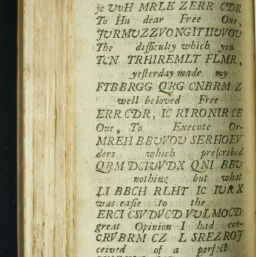 MRLE ZERR CDR
To His dear Free One,
The difficulty which you
TCN TRHIREMLT FLMR,
yesterday made my
FTBBRGG QRG CNBRM Z
well beloved Free
ERR CDR, IC RIRONIR CE
One, To Execute Or-
MREH BBUVOU SERHOEV
ders which prescribed
QRM DCIUVDX QNI BBU
nothing but what
LI BBCH RLHT IC IURX
was easie to the
ERCI CSVDVCD VULMOCD
great Opinion I had con-
CRVBRM CZ L SREZROJ
ceived of a perfect